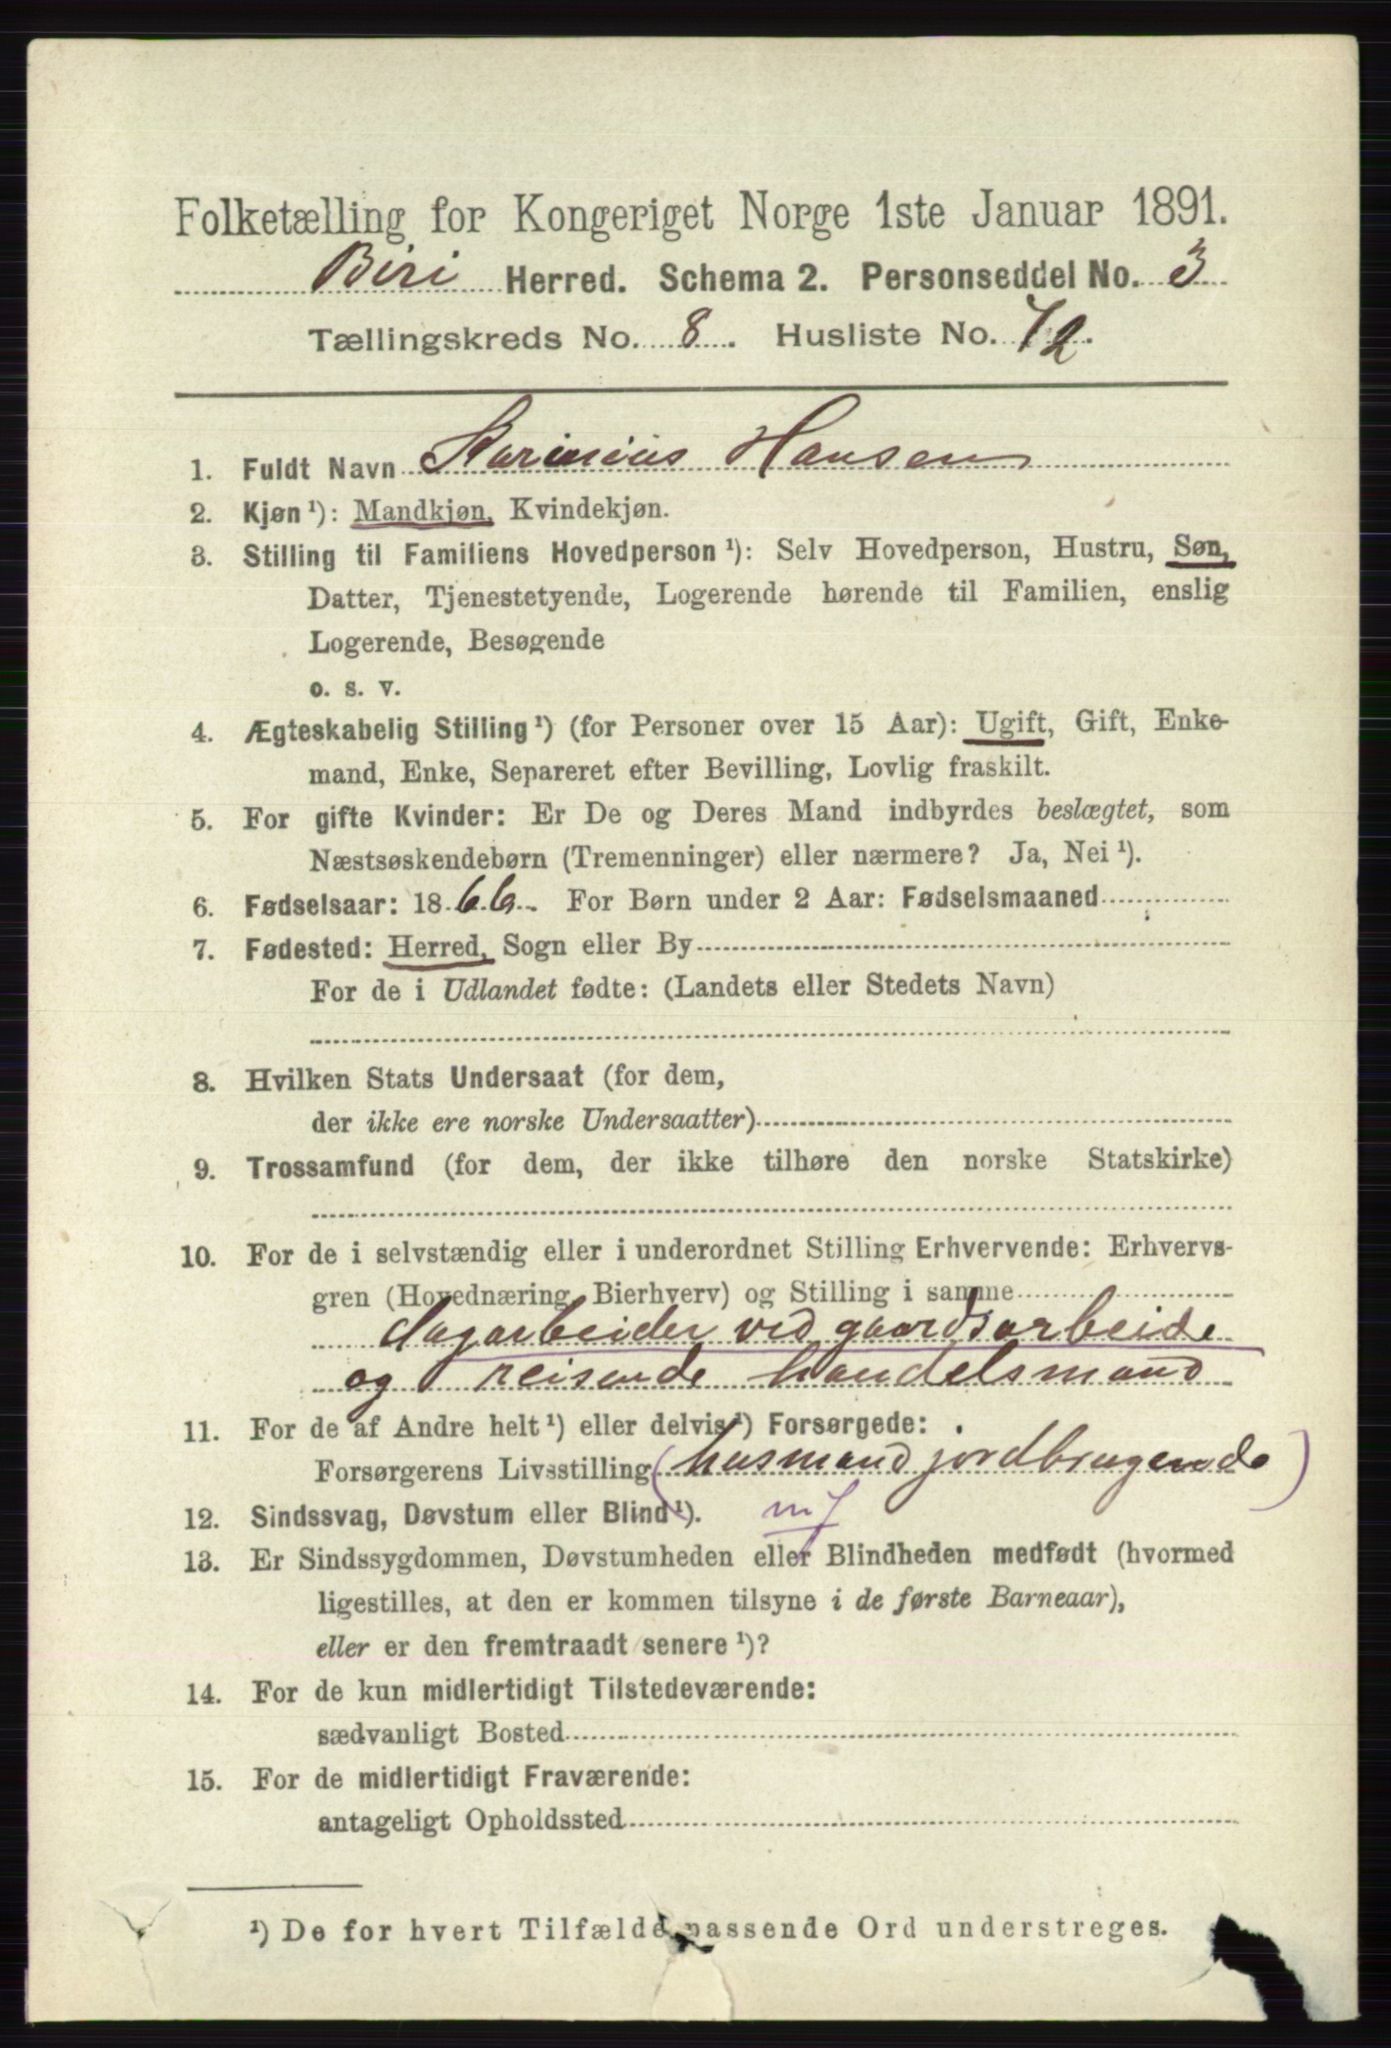 Folketælling for Kongeriget Norge 1ste Januar 1891.
Biri Herred. Schema 2. Personseddel No. 3
Tællingskreds No. 8. Husliste No. 72.
1. Fuldt Navn Karinius Hansen
2. Kjøn ¹): Mandkjøn, Kvindekjøn.
3. Stilling til Familiens Hovedperson ¹): Selv Hovedperson, Hustru, Søn,
Datter, Tjenestetyende, Logerende hørende til Familien, enslig
Logerende, Besøgende
o. s. v.
4. Ægteskabelig Stilling ¹) (for Personer over 15 Aar): Ugift, Gift, Enke-
mand, Enke, Separeret efter Bevilling, Lovlig fraskilt.
5. For gifte Kvinder: Er De og Deres Mand indbyrdes beslægtet, som
Næstsøskendebørn (Tremenninger) eller nærmere? Ja, Nei ¹).
6. Fødselsaar: 1866. For Børn under 2 Aar: Fødselsmaaned
7. Fødested: Herred, Sogn eller By
For de i Udlandet fødte: (Landets eller Stedets Navn)
8. Hvilken Stats Undersaat (for dem,
der ikke ere norske Undersaatter)
9. Trossamfund (for dem, der ikke tilhøre den norske Statskirke)
10. For de i selvstændig eller i underordnet Stilling Erhvervende: Erhvervs-
gren (Hovednæring, Bierhverv) og Stilling i samme
dagarbeider ved gaardsarbeide
og reisende handelsmand
11. For de af Andre helt ¹) eller delvis ¹) Forsørgede:
Forsørgerens Livsstilling (husmand jordbrugende)
12. Sindssvag, Døvstum eller Blind ¹).
13. Er Sindssygdommen, Døvstumheden eller Blindheden medfødt (hvormed
ligestilles, at den er kommen tilsyne i de første Barneaar),
eller er den fremtraadt senere ¹)?
14. For de kun midlertidigt Tilstedeværende:
sædvanligt Bosted
15. For de midlertidigt Fraværende:
antageligt Opholdssted
¹) De for hvert Tilfælde passende Ord understreges.